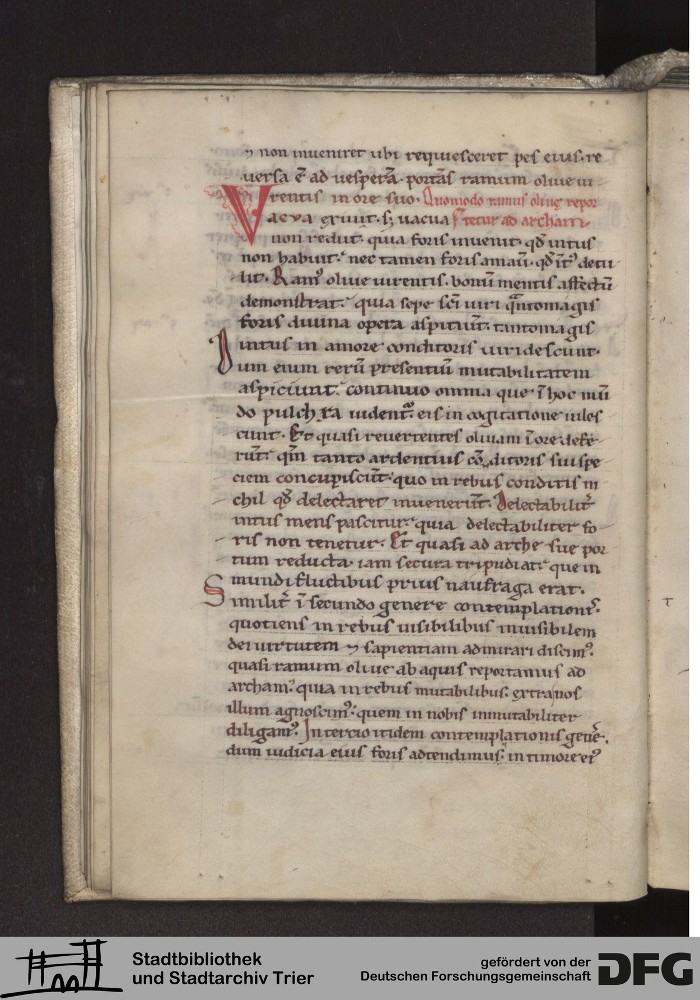 ⁊ non inueniret ubi requiesceret pes eius. re
uersa ē ad uesperā. portās ramum oliue ui
rentis in ore suo. Quomodo ramus oliuę repor
Vacua exiuit. sꝫ uacua tetur ad archam.
non rediit. quia foris inuenit. qđ intus
non habuit. nec tamen foris amauit. qđ int᷒ detu
lit. Ram᷒ oliue uirentis. bonū mentis affectū
demonstrat. quia sepe sc̄i uiri quantomagis
foris diuina opera aspiciūt. tantomagis
intus in amore conditoris uiridescunt.
Dum enim rerū presentiū mutabilitatem
aspiciunt. continuo omnia que ī hoc mū
do pulchra uident᷑. eis in cogitatione uiles
cunt. Et quasi reuertentes oliuam ī ore defe
runt. qm̄ tanto ardentius cōditoris sui spe
ciem concupiscūt. quo in rebus conditis ni
chil qđ delectaret inuenerūt. Delectabilit᷑
intus mens pascitur. quia delectabiliter fo
ris non tenetur. Et quasi ad arche sue por
tum reducta. iam secura tripudiat. que in
mundi fluctibus prius naufraga erat.
Similit᷑ ī secundo genere contemplationis.
quotiens in rebus uisibilibus inuisibilem
dei uirtutem ⁊ sapientiam admirari discim᷒.
quasi ramum oliue ab aquis reportamus ad
archam. quia in rebus mutabilibus. extra nos
illum agnoscim᷒. quem in nobis inmutabiliter
diligam᷒. In tercio itidem contemplationis genē.
dum iudicia eius foris adtendimus. in timore ei᷒
Stadtbibliothek
und Stadtarchiv Trier
gefördert von der
Deutschen Forschungsgemeinschaft
DFG